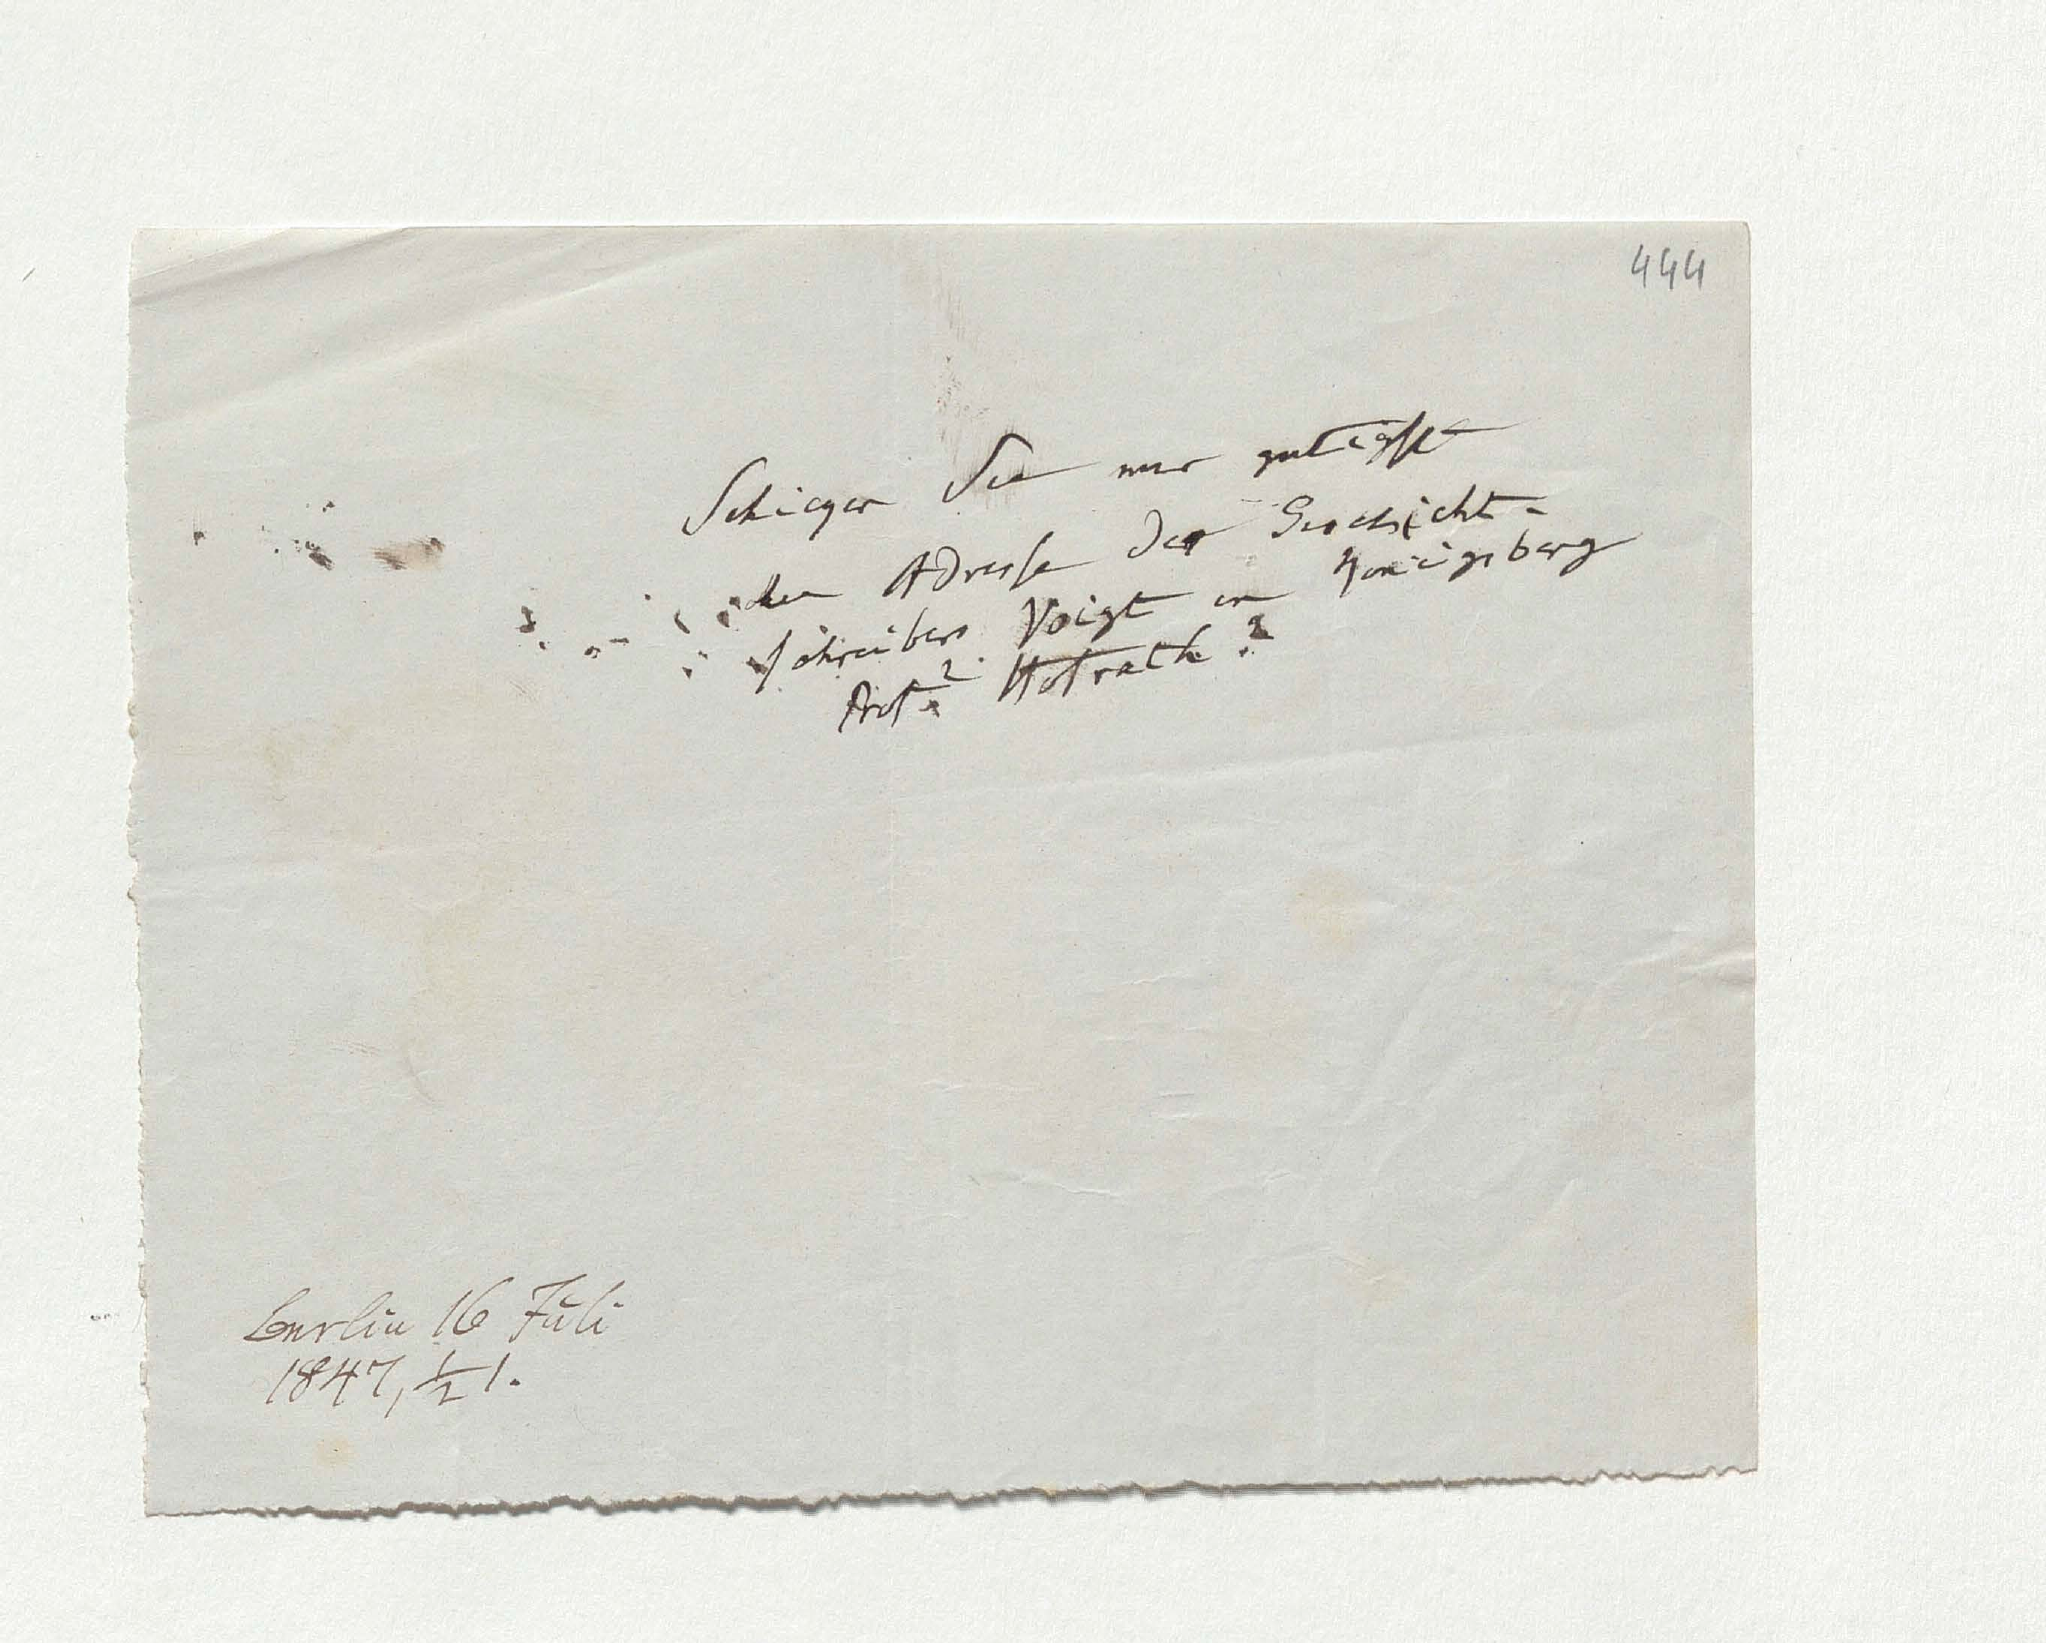 444
Schicken Sie mir gütigst
die Adresse des Geschicht-
schreibers Voigt in Königsberg
Prof.? Hofrath?
Berlin 16 Juli
1847, ½ 1.